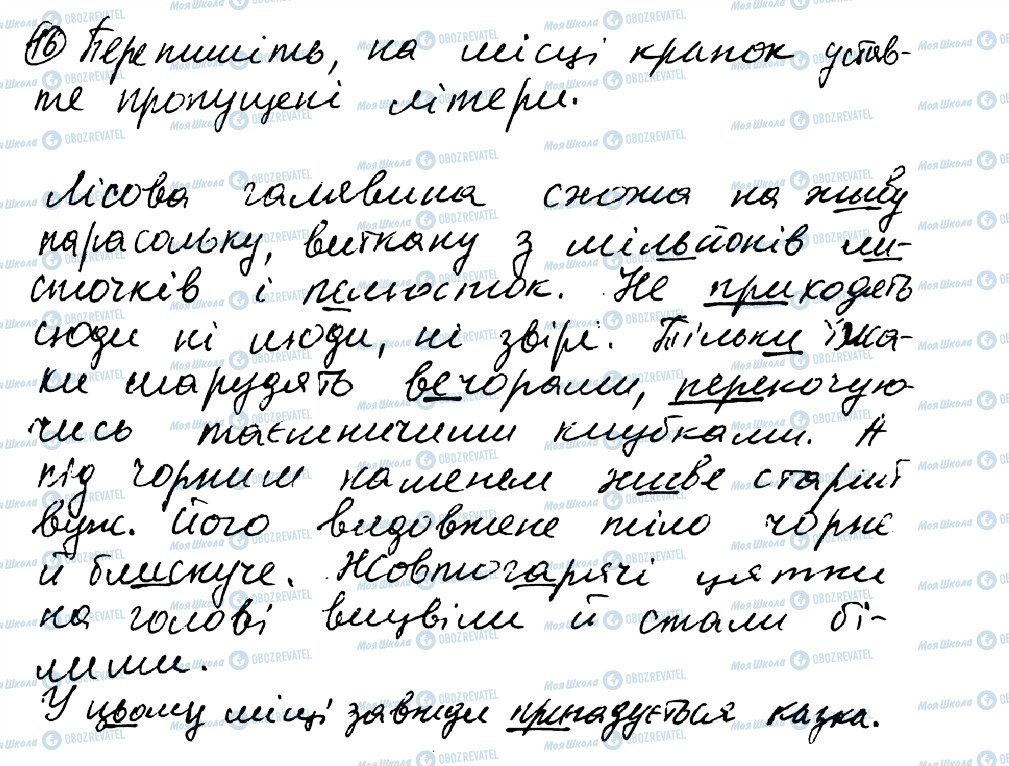 16 Перепишіть, на місці крапок устав-
те пропущені літери.
Лісова галявина схожа на живу
парасольку, виткану з мільйонів ли-
сточків і пелюсток. Не приходять
сюди ні люди, ні звірі. Тільки їжа-
ки шарудять вечорами, перекочую-
чись таємничими клубками. А
під чорним каменем живе старий
вуж. Його видовжене тіло чорне
й блискуче. Жовтогарячі цятки
на голові вицвіли й стали бі-
лими.
У цьому місці завжди пригадується казка.